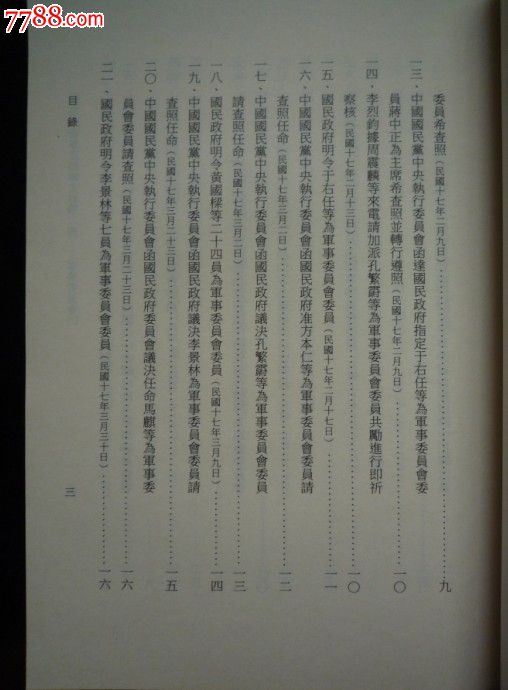 7788.com
委員希查照（民國十七年二月九日）……九
一三、中國國民黨中央執行委員會函達國民政府指定于右任等為軍事委員會委
員蔣中正為主席希查照並轉行遵照（民國十七年二月九日）……一〇
一四、李烈鈞據周震麟等來電請加派孔繁霨等為軍事委員會委員共勵進行即祈
察核（民國十七年二月十三日）……一〇
一五、國民政府明令于右任等為軍事委員會委員（民國十七年二月十七日）……一一
一六、中國國民黨中央執行委員會函國民政府准方本仁等為軍事委員會委員請
查照任命（民國十七年三月二日）……一二
一七、中國國民黨中央執行委員會函國民政府議決孔繁霨等為軍事委員會委員
請查照任命（民國十七年三月二日）……一三
一八、國民政府明令黃國樑等二十四員為軍事委員會委員（民國十七年三月九日）……一四
一九、中國國民黨中央執行委員會函國民政府議決李景林為軍事委員會委員請
查照任命（民國十七年三月二十三日）……一五
二〇、中國國民黨中央執行委員會函國民政府委員會議決任命馬麒等為軍事委
員會委員請查照（民國十七年三月二十三日）……一六
二一、國民政府明令李景林等七員為軍事委員會委員（民國十七年三月三十日）……一六
目錄
三